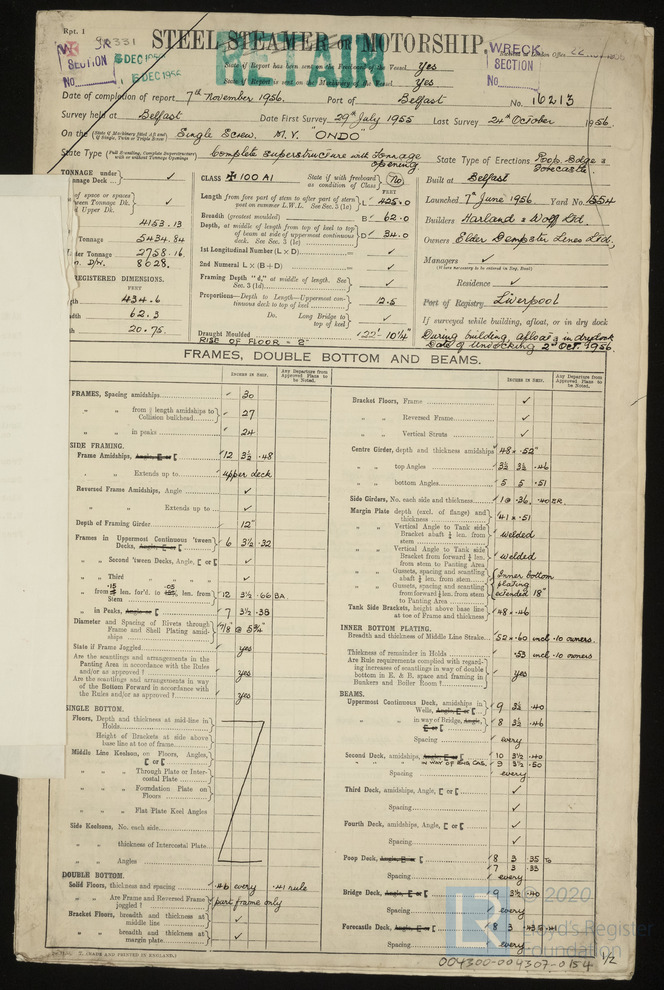 Rpt. 1
STEEL STEAMER OR MOTORSHIP.
RETAIN
WRECK
SECTION
No.
State if Report has been sent on the Freeboard of the Vessel Yes
State if Report is sent on the Machinery of the Vessel Yes
Date of completion of report 7th November 1956. Port of Belfast No. 16213
Survey held at Belfast Date First Survey 29th July 1955 Last Survey 24th October 1956
On the Single Screw, M.V. "ONDO"
State Type Complete superstructure with Tonnage opening State Type of Erections Poop, Bdge & Forecastle
TONNAGE under
Tonnage Deck
4153.13
Tonnage 5434.84
Under Tonnage 2758.16
8028.
REGISTERED DIMENSIONS.
FEET
434.6
62.3
20.75.
CLASS ✠100 A1 State if with freeboard as condition of Class No
FEET
Length from fore part of stem to after part of stern post on summer L.W.L. See Sec. 3 (1c) L 425.0
Breadth (greatest moulded) B 62.0
Depth, at middle of length from top of keel to top of beam at side of uppermost continuous deck. See Sec. 3 (1c) D 34.0
1st Longitudinal Number (L × D) ✓
2nd Numeral L × (B + D) ✓
Framing Depth "d," at middle of length. See Sec. 3 (1d) ✓
Proportions—Depth to Length—Uppermost continuous deck to top of keel 12.5
Do. Long Bridge to top of keel ✓
Draught Moulded 22' 10¼"
RISE OF FLOOR = 2"
Built at Belfast
Launched 7th June 1956. Yard No. 1554
Builders Harland & Wolff Ltd
Owners Elder Dempster Lines Ltd.,
Managers ✓
(Where necessary to be entered in Reg. Book)
Residence ✓
Port of Registry Liverpool
If surveyed while building, afloat, or in dry dock
During building, afloat & in drydock
Date of undocking 2nd Oct. 1956.
FRAMES, DOUBLE BOTTOM AND BEAMS.
INCHES IN SHIP.
Any Departure from Approved Plans to be Noted.
FRAMES, Spacing amidships 30
" " from ⅗ length amidships to Collision bulkhead 27
" " in peaks 24
SIDE FRAMING.
Frame Amidships, 12 3½ .48
" " Extends up to upper deck
Reversed Frame Amidships, Angle ✓
" " Extends up to ✓
Depth of Framing Girder 12"
Frames in Uppermost Continuous 'tween Decks, 6 3½ .32
" " Second 'tween Decks, Angle, [ or [ ✓
" " Third " " ✓
12 3½ .66 BA.
" in Peaks, 7 3½ .38
Diameter and Spacing of Rivets through Frame and Shell Plating amidships 7/8 @ 5¾"
State if Frame Joggled yes
Are the scantlings and arrangements in the Panting Area in accordance with the Rules and/or as approved? yes
Are the scantlings and arrangements in way of the Bottom Forward in accordance with the Rules and/or as approved? yes
SINGLE BOTTOM.
Floors, Depth and thickness at mid-line in Holds
Height of Brackets at side above base line at toe of frame
Middle Line Keelson, on Floors, Angles, [ or [
" " Through Plate or Intercostal Plate
" " Foundation Plate on Floors
" " Flat Plate Keel Angles
Side Keelsons, No. each side
" " thickness of Intercostal Plate
" " Angles
DOUBLE BOTTOM.
Solid Floors, thickness and spacing .46 every .41 rule
" " Are Frame and Reversed Frame joggled? part frame only
Bracket Floors, breadth and thickness at middle line ✓
" " breadth and thickness at margin plate ✓
Bracket Floors, Frame ✓
" " Reversed Frame ✓
" " Vertical Struts ✓
Centre Girder, depth and thickness amidships 48 × .52"
" " top Angles 3½ 3½ .46
" " bottom Angles 5 5 .51
Side Girders, No. each side and thickness 1 @ .36, .40 BR.
Margin Plate depth (excl. of flange) and thickness 41 × .51
" " Vertical Angle to Tank side Bracket abaft ¼ len. from stem welded
" " Vertical Angle to Tank side Bracket from forward ¼ len. from stem to Panting Area welded
" " Gussets, spacing and scantling abaft ¼ len. from stem
" " Gussets, spacing and scantling from forward ¼ len. from stem to Panting Area
Inner bottom plating extended 18"
Tank Side Brackets, height above base line at toe of Frame and thickness 48 × .46
INNER BOTTOM PLATING.
Breadth and thickness of Middle Line Strake 52 × .60 incl .10 owners.
Thickness of remainder in Holds .53 incl .10 owners
Are Rule requirements complied with regarding increases of scantlings in way of double bottom in E. & B. space and framing in Bunkers and Boiler Room? yes
BEAMS.
Uppermost Continuous Deck, amidships in Wells, 9 3½ .40
" " in way of Bridge, 8 3½ .46
Spacing every
Second Deck, amidships, 10 3½ .40
9 3½ .50
Spacing every
Third Deck, amidships, Angle, [ or [ ✓
Spacing ✓
Fourth Deck, amidships, Angle, [ or [ ✓
Spacing ✓
Poop Deck, 8 3 .35 to
7 3 .33
Spacing every
Bridge Deck, 9 3½ .40
Spacing every
Forecastle Deck, 8 3
Spacing every
(MADE AND PRINTED IN ENGLAND.)
LR © 2020
Lloyd's Register
Foundation
004300-004307-0154 1/2